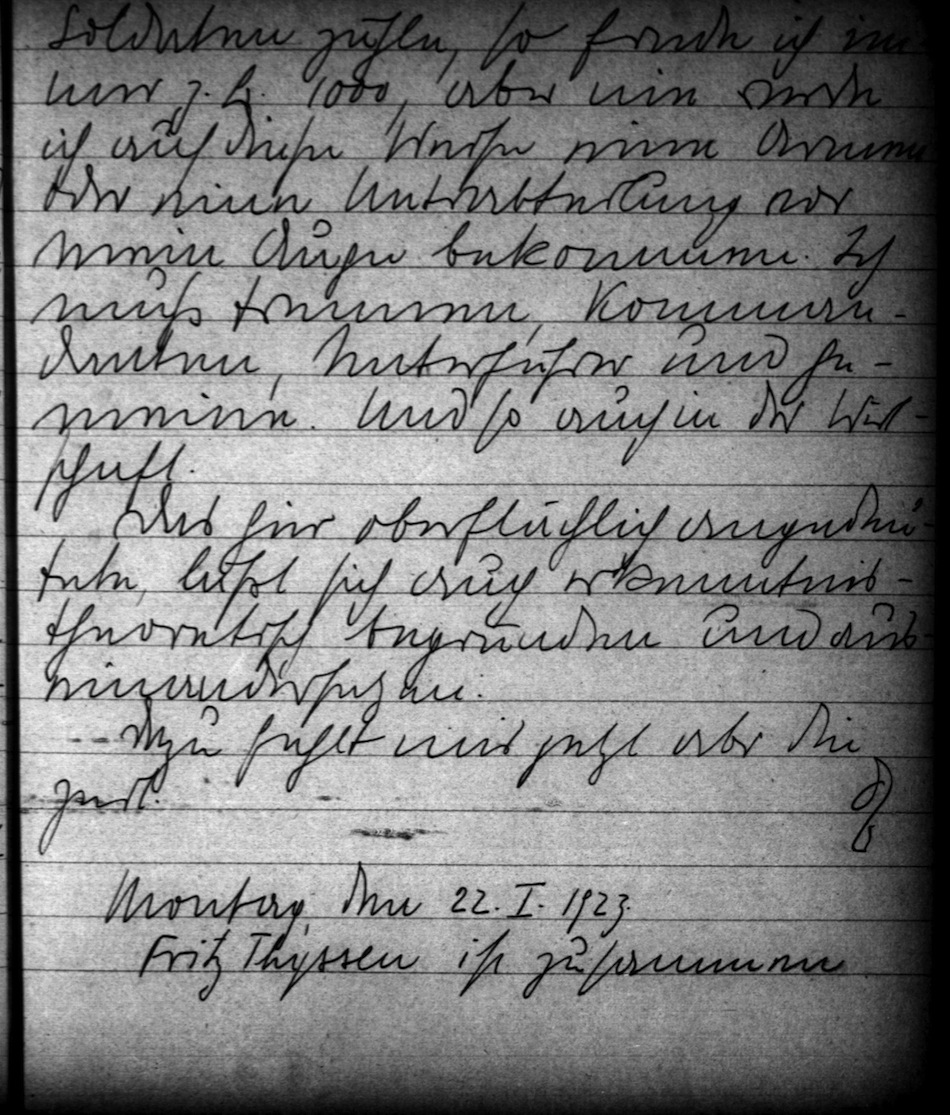 Soldaten zähle, so finde ich im-
mer z. B. 1000, aber nie werde
ich auf diese Weise eine Armee
oder eine Unterabteilung vor
meine Augen bekommen. Ich
muß trennen, Komman-
danten, Unterführer und Ge-
meine. Und so auch in der Wirt-
schaft.
Das hier oberflächlich angedeu-
tete, läßt sich auch erkenntnis-
theoretisch begründen und aus-
einandersetzen.
Dazu fehlt mir jetzt aber die
Zeit.
Montag, den 22. I. 1923.
Fritz Thyssen ist zusammen